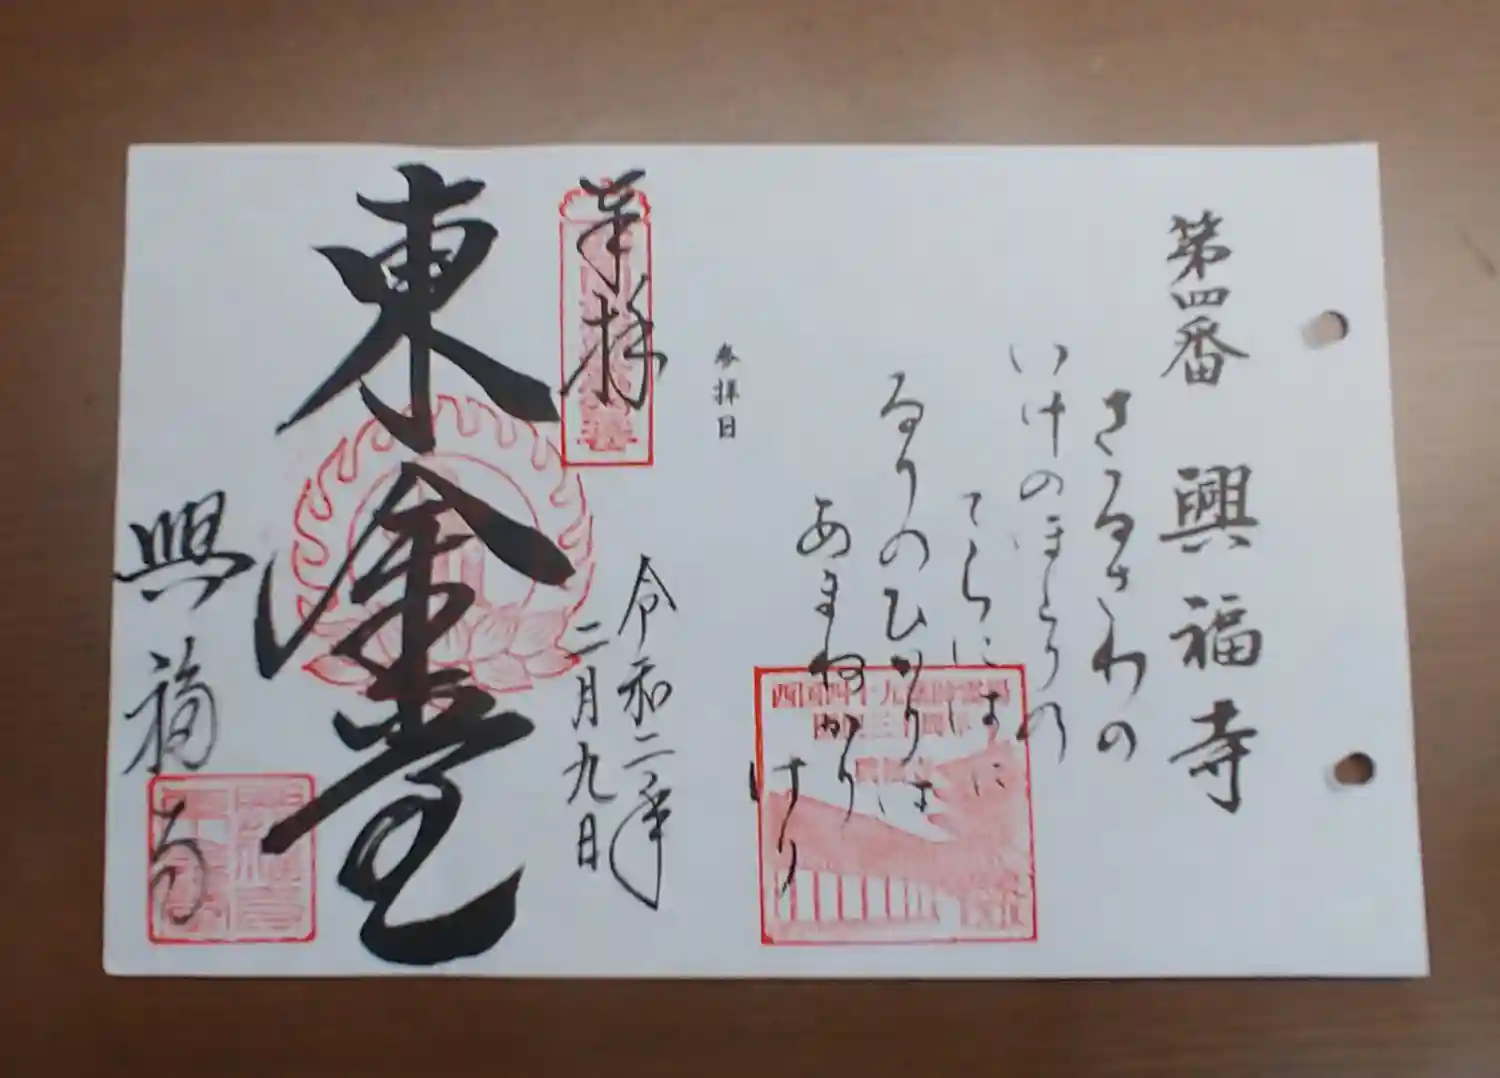 第四番 興福寺
さるさわの
いけのほとりの
てらにはに
るりのひかりは
あまねかり
けり
西国四十九薬師霊場
開創三十周年
参拝日
奉拝
令和二年
二月九日
東金堂
興福寺